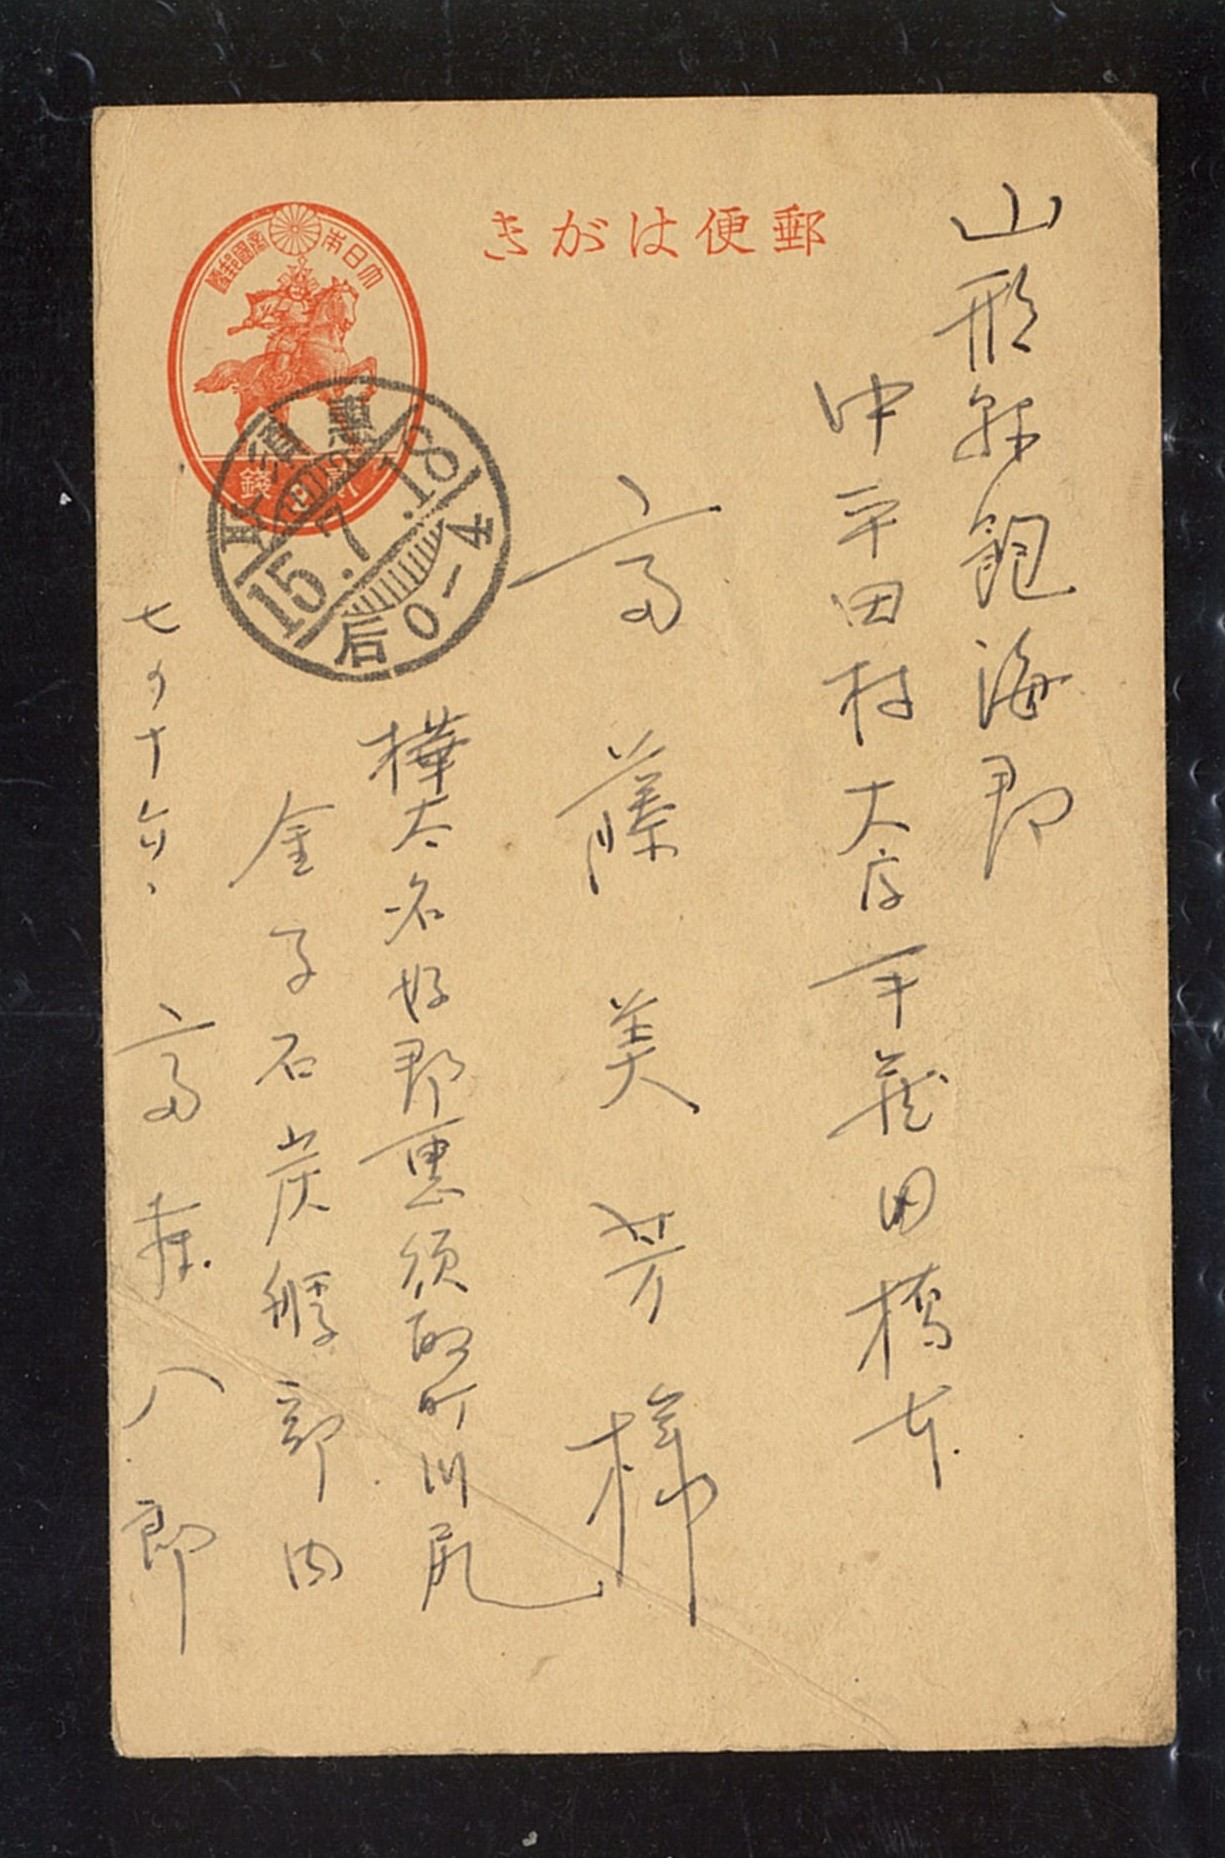 郵便はがき
大日本帝國郵便
惠須取
15.7.18
后0-4
山形縣飽海郡
中平田村大字手蔵田橋本
高藤美芳様
樺太名好郡惠須取町川尻
金子石炭艀部内
七月十六日、高藤八郎